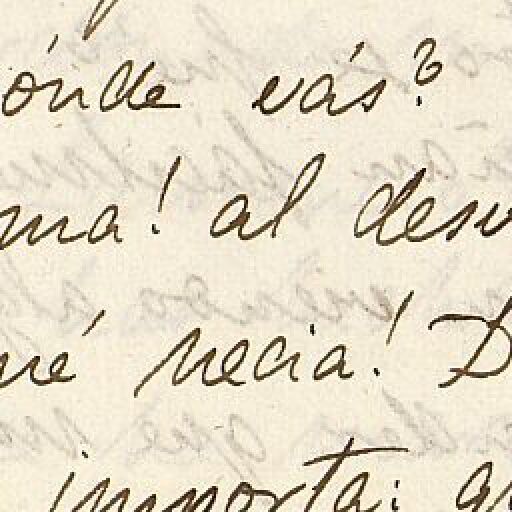 ónde vás?
ma! al desv
ué necia! D
importa: qu